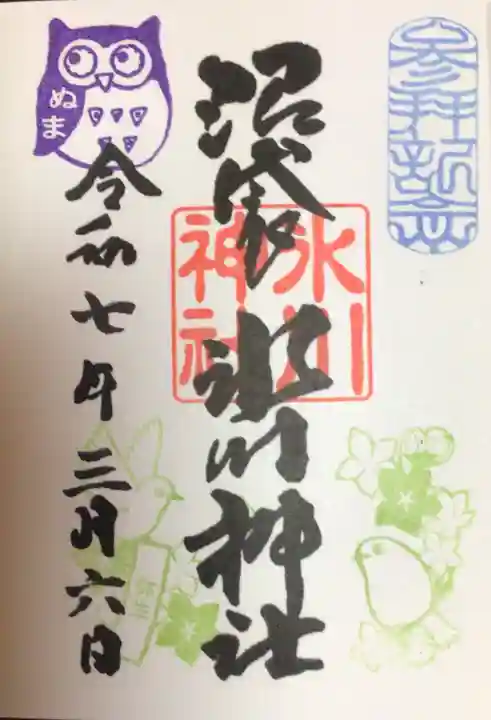 参拝記念
沼袋 氷川神社
氷川
神社
ぬま
令和七年三月六日